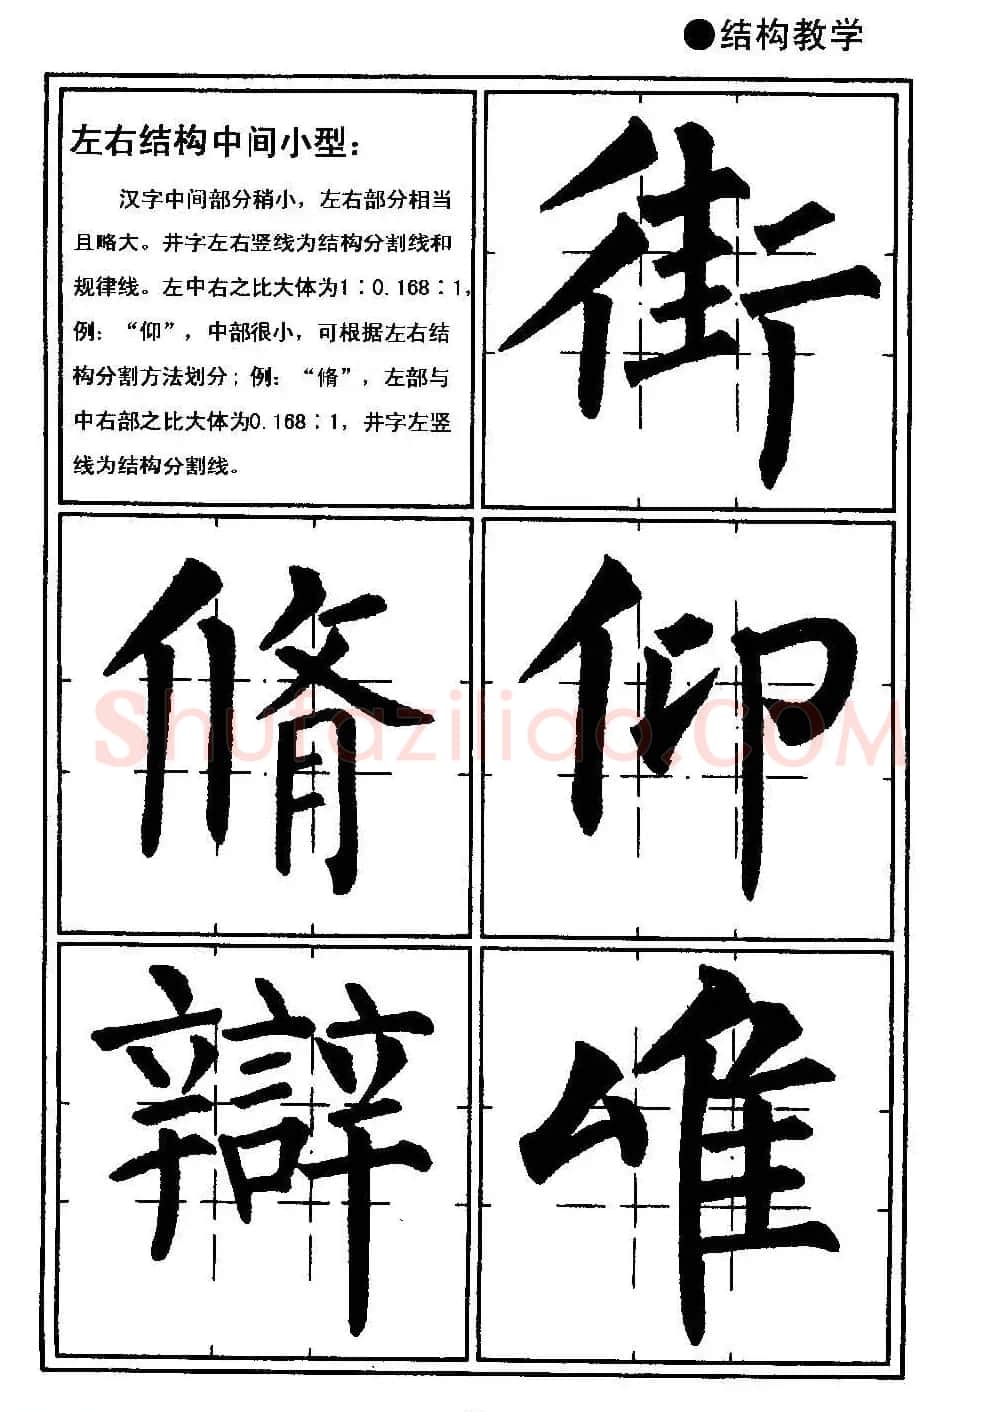 ●结构教学
左右结构中间小型：
汉字中间部分稍小，左右部分相当
且略大。井字左右竖线为结构分割线和
规律线。左中右之比大体为1∶0.168∶1，
例：“仰”，中部很小，可根据左右结
构分割方法划分；例：“脩”，左部与
中右部之比大体为0.168∶1，井字左竖
线为结构分割线。
街
脩 仰
辯 唯
Shufaziliao.COM